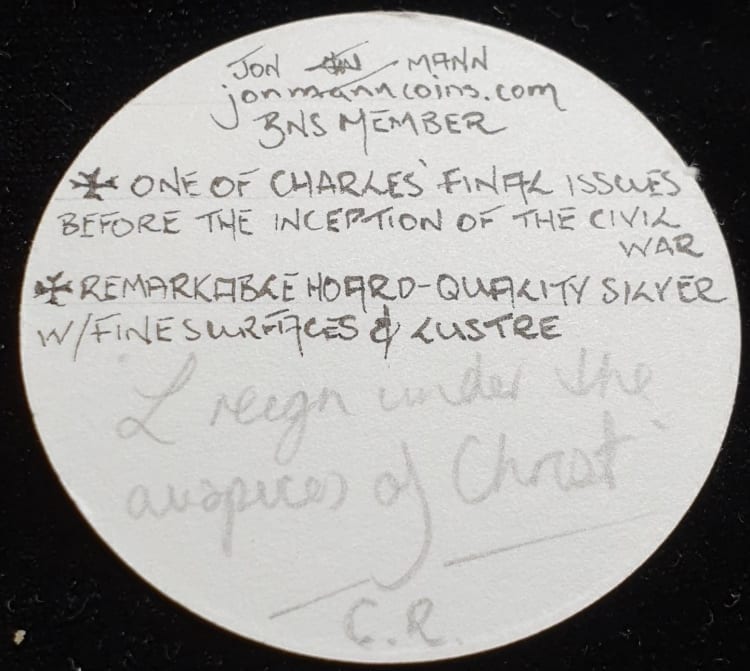 JON MANN
jonmanncoins.com
BNS MEMBER
✠ ONE OF CHARLES' FINAL ISSUES
BEFORE THE INCEPTION OF THE CIVIL
WAR
✠ REMARKABLE HOARD-QUALITY SILVER
W/FINE SURFACES & LUSTRE
'I reign under the
auspices of Christ'
C.R.